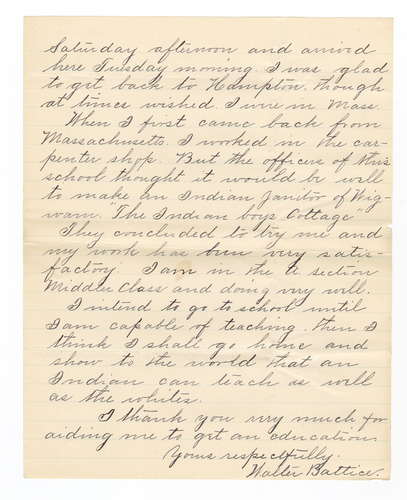 Saturday afternoon and arrived
here Tuesday morning. I was glad
to get back to Hampton, though
at times wished I were in Mass.
When I first came back from
Massachusetts. I worked in the car-
penter shop. But the officers of this
school thought it would be well
to make an Indian janitor of Wig-
wam. "The Indian boys Cottage"
They concluded to try me and
my work has been very satis-
factory. I am in the section
Middler Class and doing very well.
I intend to go to school until
I am capable of teaching. then I
think I shall go home and
show to the world that an
Indian can teach as well
as the whites.
I thank you very much for
aiding me to get an education
Yours respectfully.
Walter Battice.